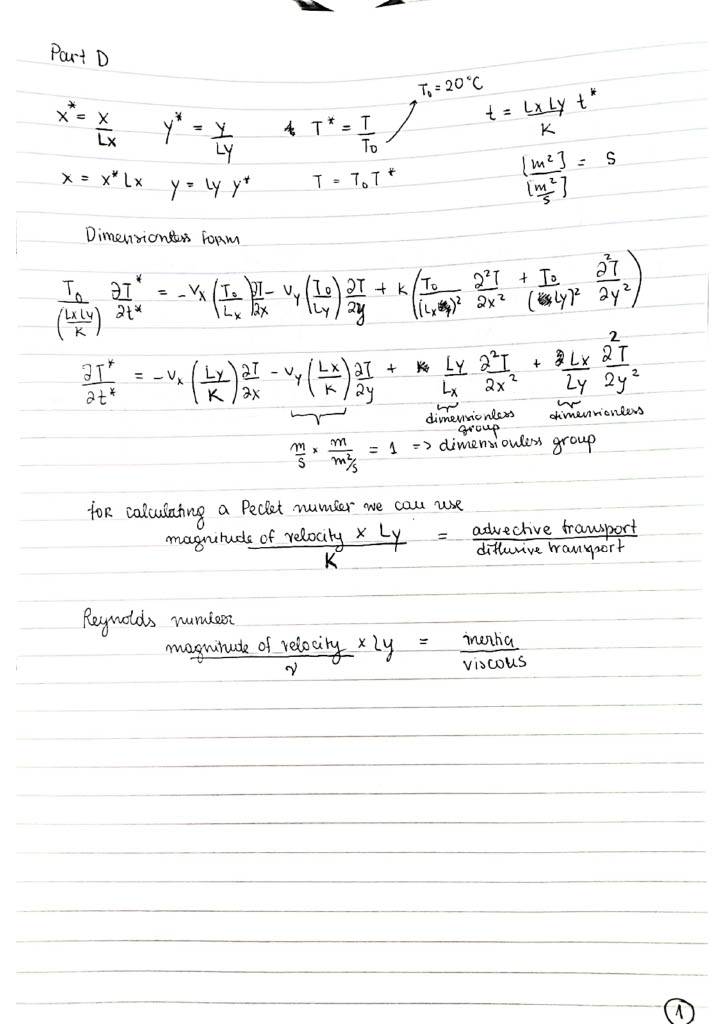 Part D
T₀ = 20°C
x* = x/Lx   y* = y/Ly   T* = T/T₀   t = LxLy/K t*
x = x* Lx   y = Ly y*   T = T₀T*   [m²]/[m²/s] = S
Dimensionless form
T₀/(LxLy/K) ∂T*/∂t* = -Vx (T₀/Lx) ∂T/∂x - Vy (T₀/Ly) ∂T/∂y + K (T₀/(Lx)² ∂²T/∂x² + T₀/(Ly)² ∂²T/∂y²)
∂T*/∂t* = -Vx (Ly/K) ∂T/∂x - Vy (Lx/K) ∂T/∂y + Ly/Lx ∂²T/∂x² + Lx/Ly ∂²T/∂y²
dimensionless group   dimensionless
m/s × m/(m²/s) = 1 => dimensionless group
for calculating a Peclet number we can use
magnitude of velocity × Ly / K = advective transport / diffusive transport
Reynolds number
magnitude of velocity × Ly / ν = inertia / viscous
1